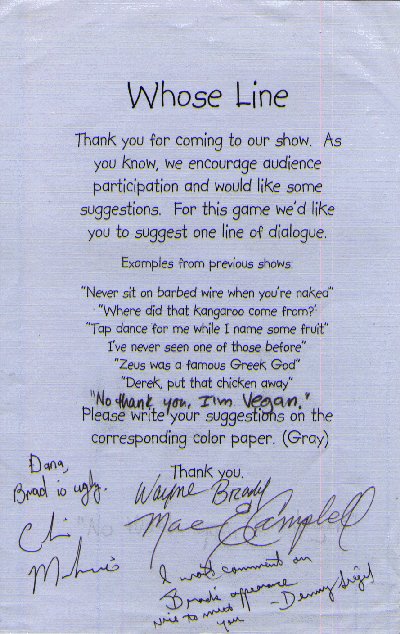 Whose Line
Thank you for coming to our show. As
you know, we encourage audience
participation and would like some
suggestions. For this game we'd like
you to suggest one line of dialogue.
Examples from previous shows:
"Never sit on barbed wire when you're naked"
"Where did that kangaroo come from?"
"Tap dance for me while I name some fruit"
I've never seen one of those before"
"Zeus was a famous Greek God"
"Derek, put that chicken away"
"No thank you, I'm Vegan."
Please write your suggestions on the
corresponding color paper. (Gray)
Thank you.
Dana,
Brad is ugly.
Wayne Brady
Mac Campbell
I won't comment on
Brad's appearance
nice to meet
you
-Denny Siegel